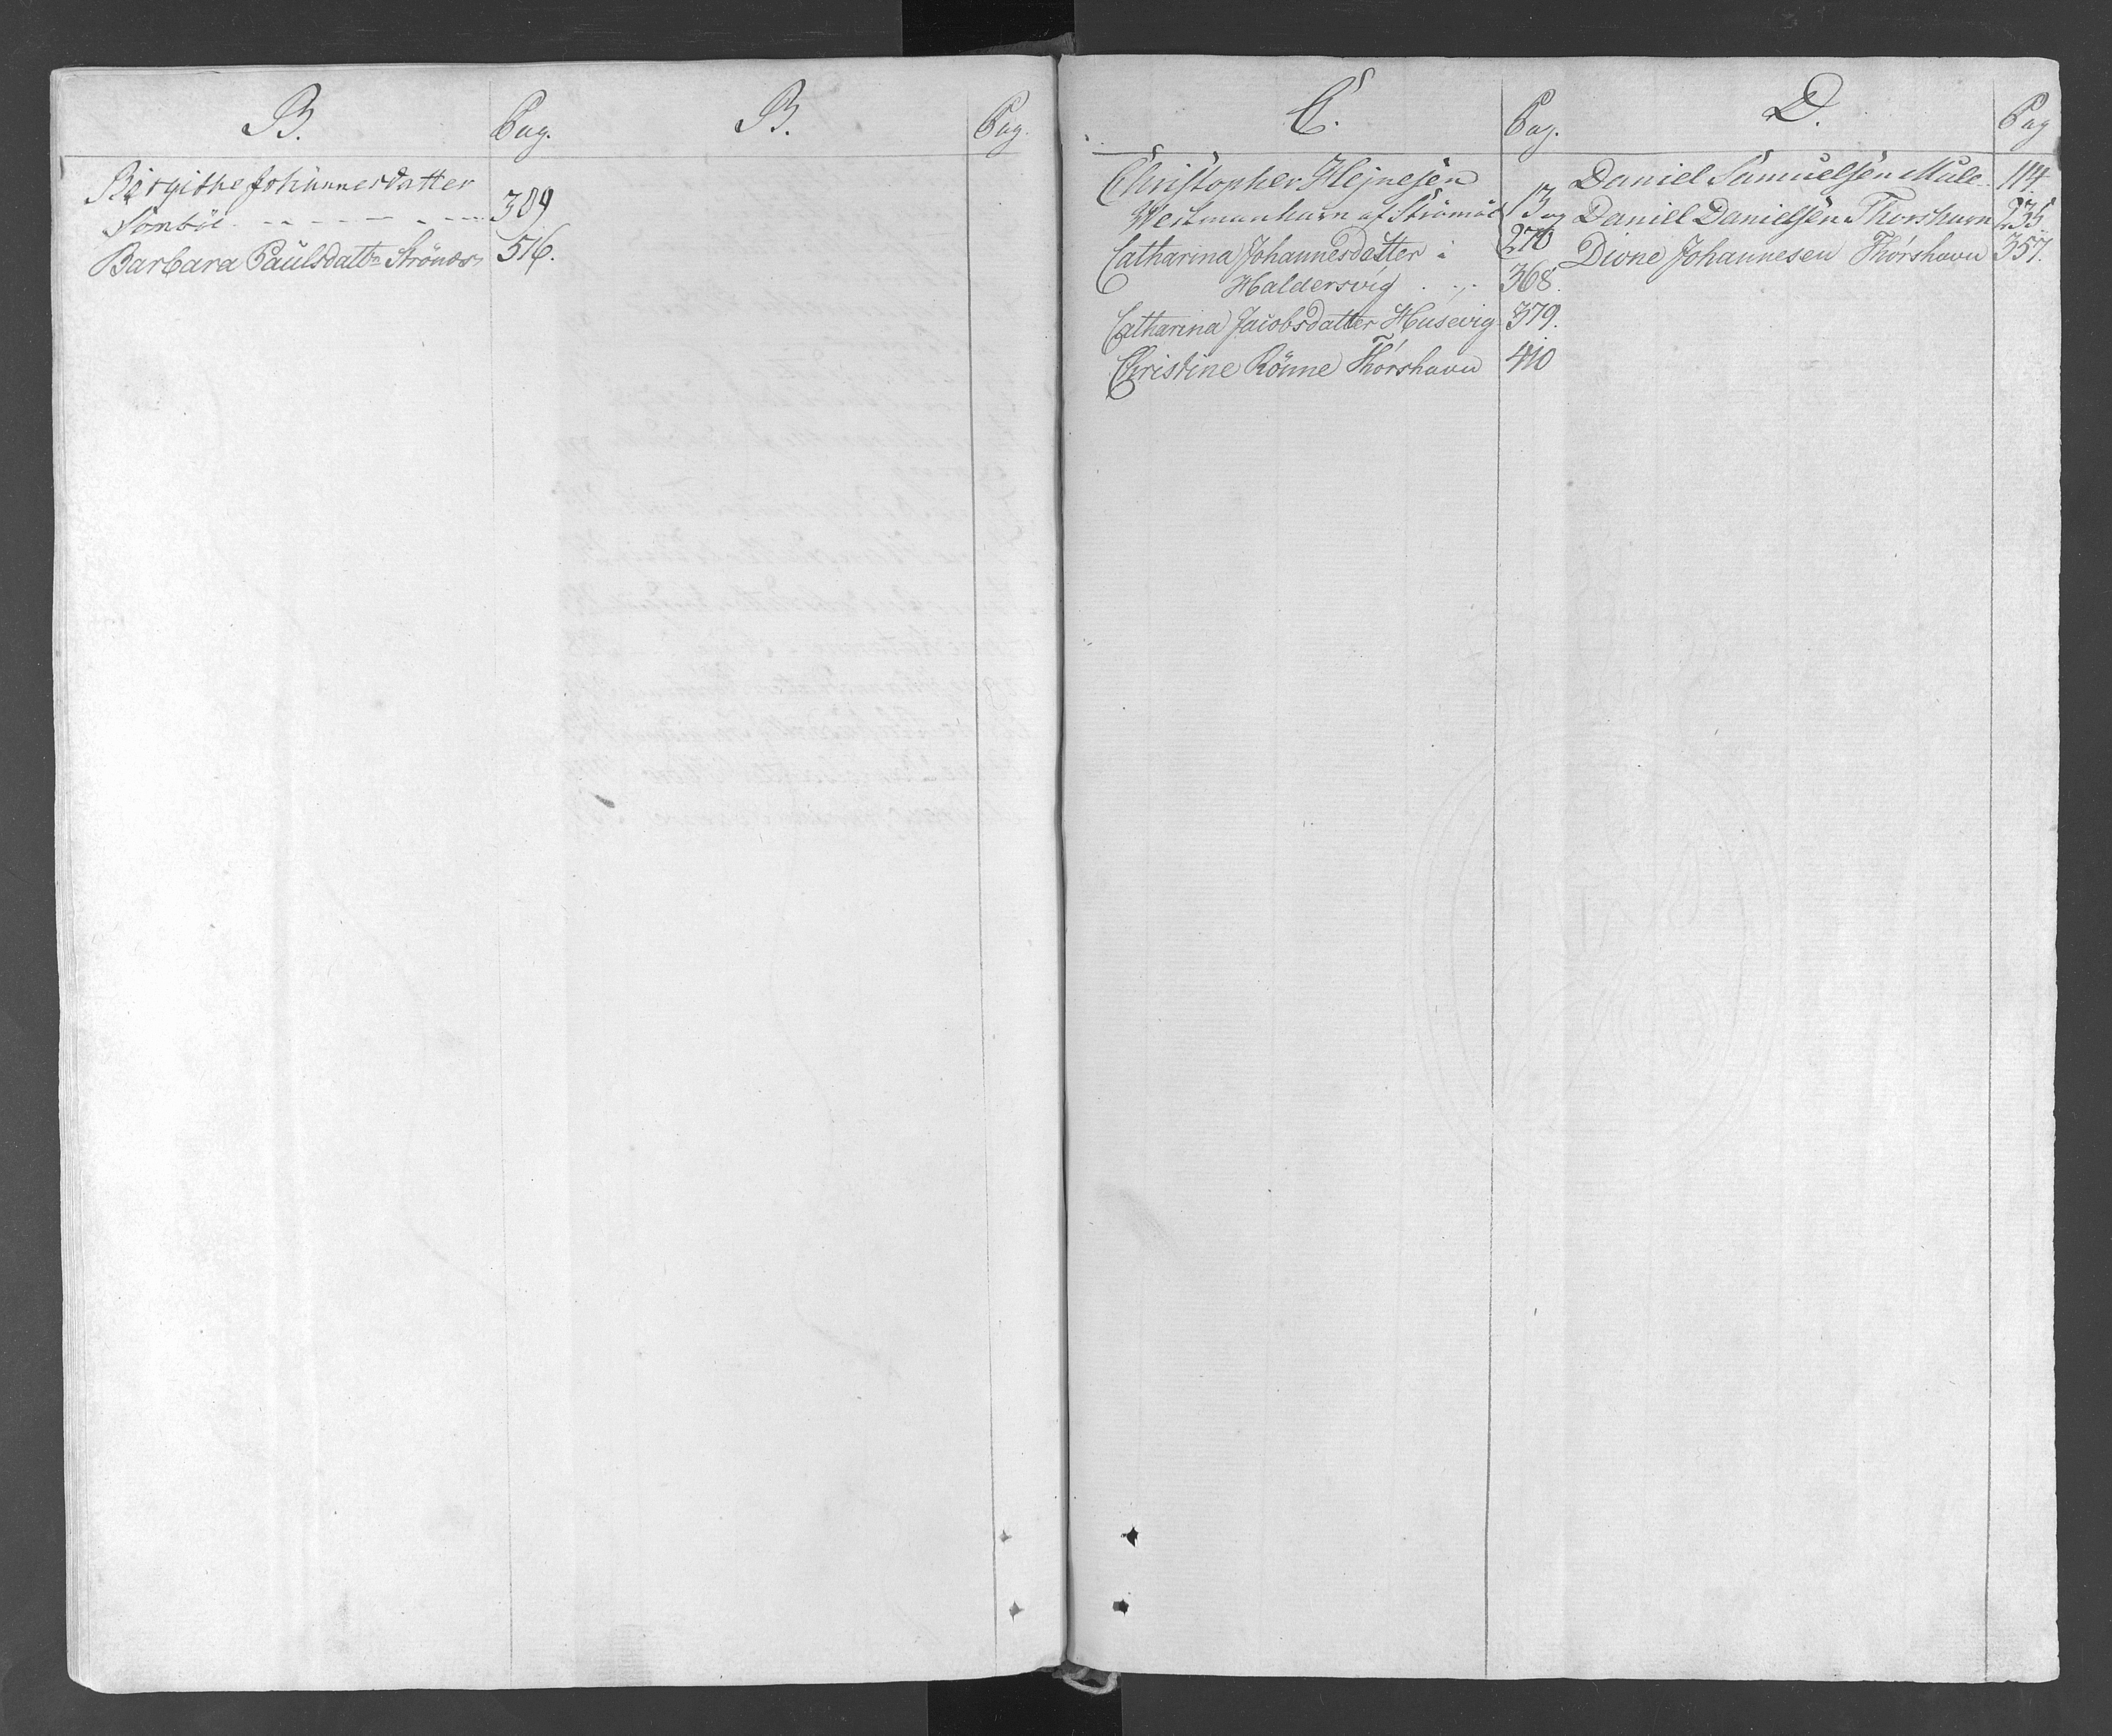 B.
Pag.
Birgithe Johannesdatter
Sønbøe 389
Barbara Paulsdattr Strönæs 516.
B.
Pag.
C.
Pag.
Christopher Hejnesen
Westmanhavn af Strömöe 13 og
270
Catharina Johannesdatter i
Haldersvig 368.
Catharina Jacobsdatter Husevig 379.
Christine Rönne Thórshavn 410
D.
Pag
Daniel Samuelsen Mule 114.
Daniel Danielsen Thorshavn 235.
Dione Johannesen Thórshavn 357.